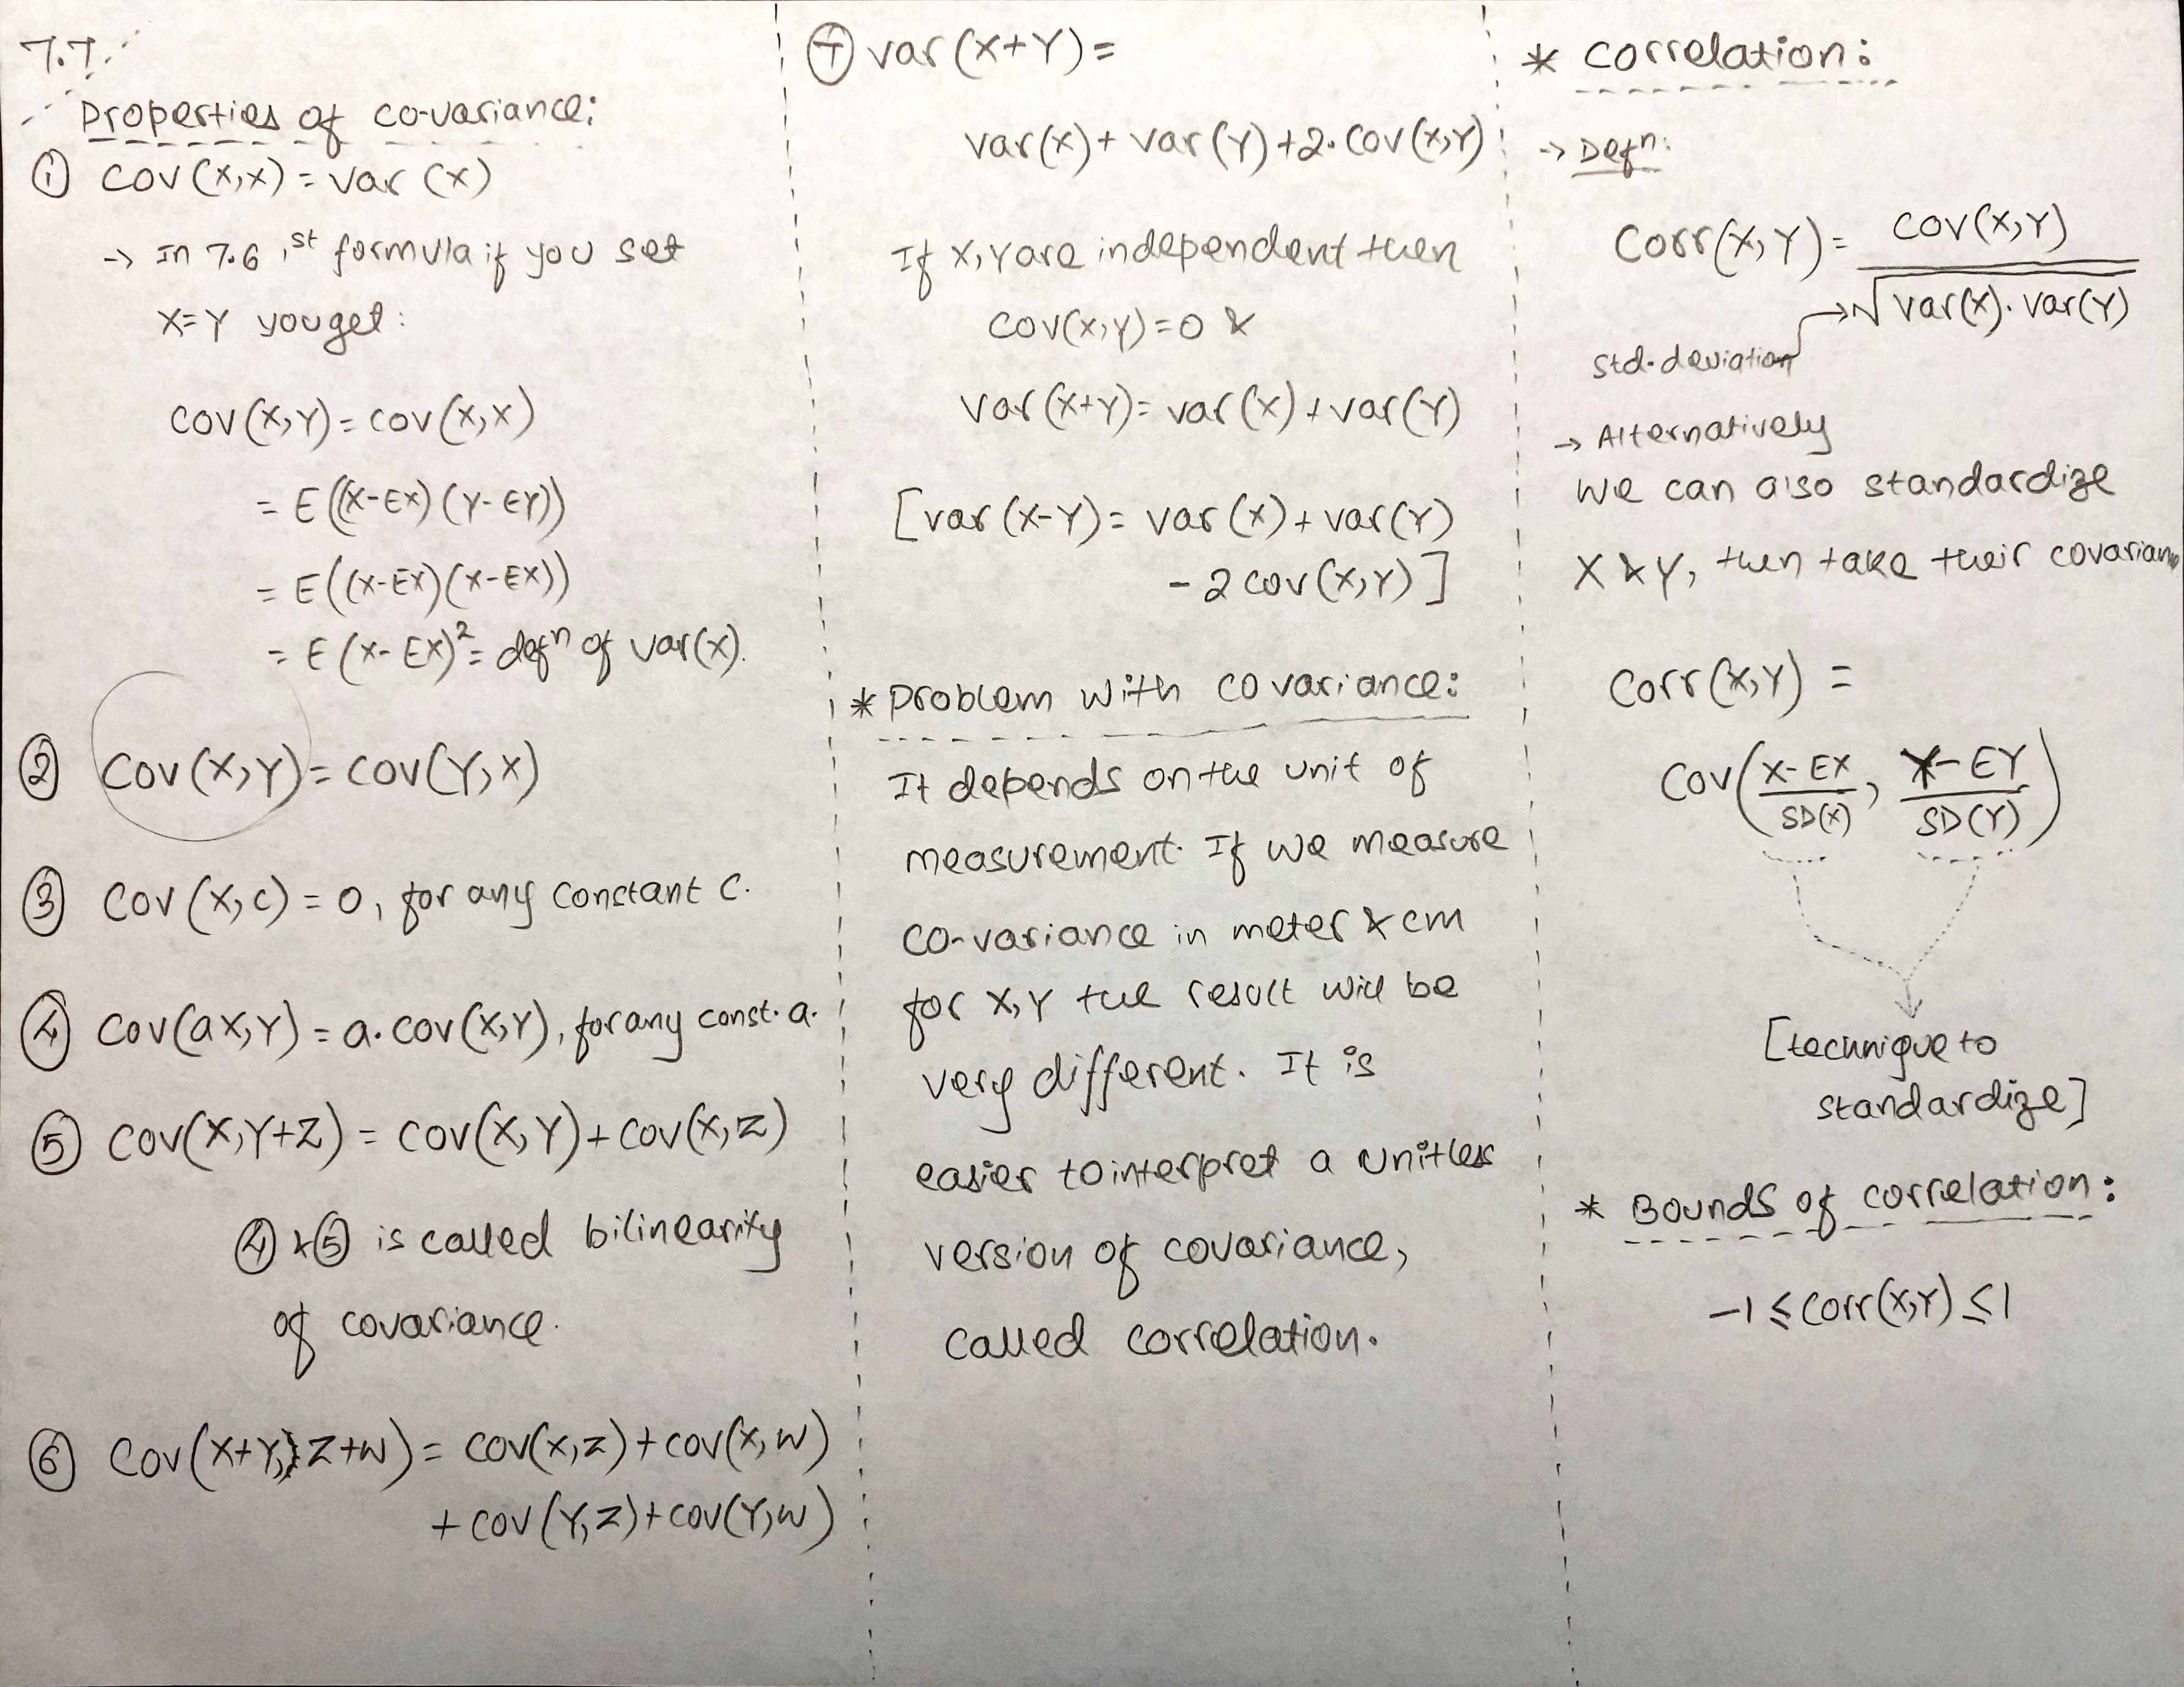 7.7.
Properties of co-variance:
① Cov(X,X) = Var(X)
→ In 7.6 1st formula if you set
X=Y you get:
Cov(X,Y) = Cov(X,X)
= E((X-EX)(Y-EY))
= E((X-EX)(X-EX))
= E(X-EX)² = defⁿ of Var(X).
② Cov(X,Y) = Cov(Y,X)
③ Cov(X,C) = 0, for any constant C.
④ Cov(aX,Y) = a.Cov(X,Y), for any const. a.
⑤ Cov(X,Y+Z) = Cov(X,Y)+Cov(X,Z)
④ & ⑤ is called bilinearity
of covariance.
⑥ Cov(X+Y,Z+W) = Cov(X,Z)+Cov(X,W)
+Cov(Y,Z)+Cov(Y,W)
⑦ Var(X+Y)=
Var(X)+Var(Y)+2.Cov(X,Y)
If X,Y are independent then
Cov(X,Y)=0 &
Var(X+Y)=Var(X)+Var(Y)
[Var(X-Y)=Var(X)+Var(Y)
-2Cov(X,Y)]
* Problem with covariance:
It depends on the unit of
measurement. If we measure
co-variance in meter & cm
for X,Y the result will be
very different. It is
easier to interpret a unitless
version of covariance,
called correlation.
* Correlation:
→ Defⁿ:
Corr(X,Y) = Cov(X,Y)
√Var(X).Var(Y)
std.deviation
→ Alternatively
we can also standardize
X & Y, then take their covariance
Corr(X,Y) =
Cov(X-EX/SD(X), Y-EY/SD(Y))
[technique to
standardize]
* Bounds of correlation:
-1 ≤ Corr(X,Y) ≤ 1